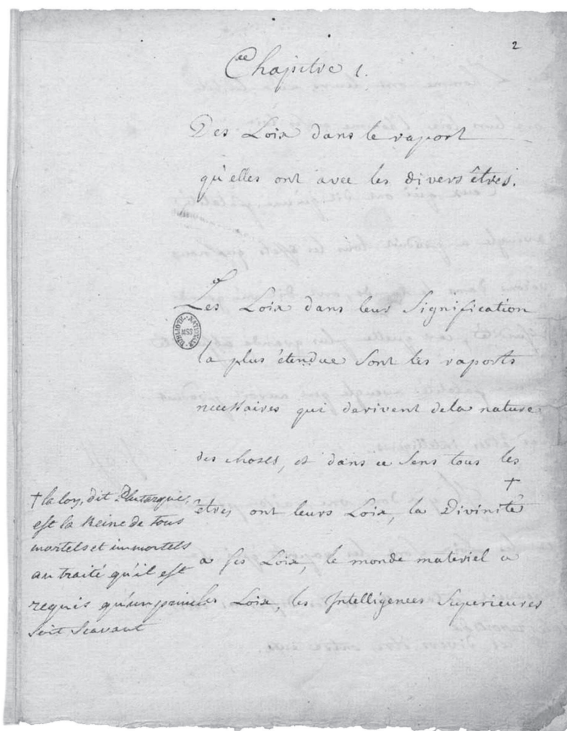 2
Chapitre 1.
Des Loix dans le raport
qu'elles ont avec les divers êtres.
Les Loix dans leur Signification
la plus étendue sont les raports
necessaires qui darivent dela nature
des choses, et dans ce sens tous les
êtres ont leurs Loix, la Divinité †
a ses Loix, le monde materiel a
ses Loix, les Intelligences Superieures
† la loy, dit Plutarque,
est la Reine de tous
mortels et immortels
au traité qu'il est
requis qu'un prince
soit scavant